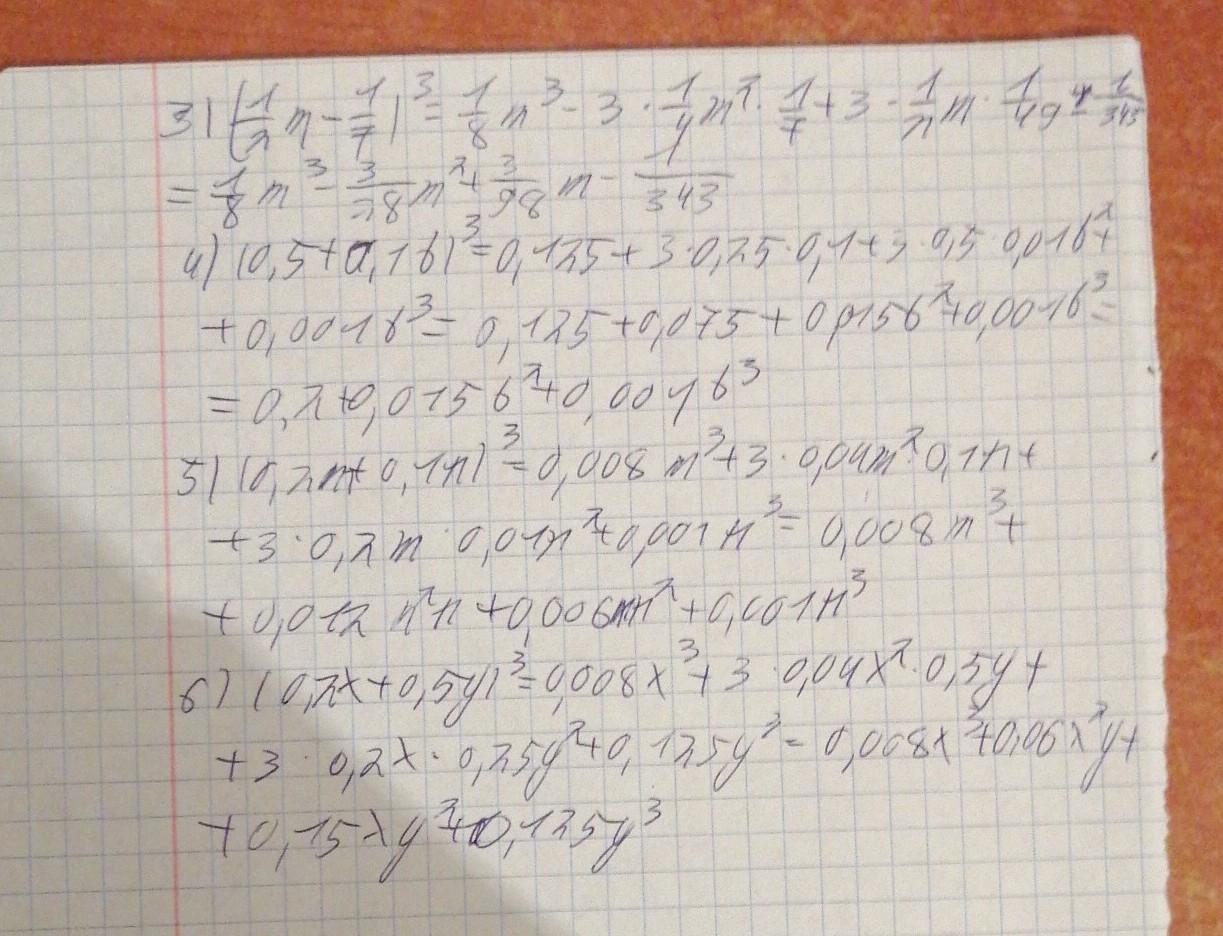 3) (1/2 m - 1/7)³ = 1/8 m³ - 3 · 1/4 m² · 1/7 + 3 · 1/2 m · 1/49 - 1/343
= 1/8 m³ - 3/28 m² + 3/98 m - 1/343
4) (0,5+0,1b)³=0,125+3·0,25·0,1+3·0,5·0,01b²+
+0,001b³= 0,125+0,075+0,015b²+0,001b³=
= 0,2+0,015b²+0,001b³
5) (0,2m+0,1n)³=0,008m³+3·0,04m²·0,1n+
+3·0,2m·0,01n²+0,001n³= 0,008m³+
+0,012m²n+0,006mn²+0,001n³
6) (0,2x+0,5y)³=0,008x³+3·0,04x²·0,5y+
+3·0,2x·0,25y²+0,125y³= 0,008x³+0,06x²y+
+0,15xy²+0,125y³